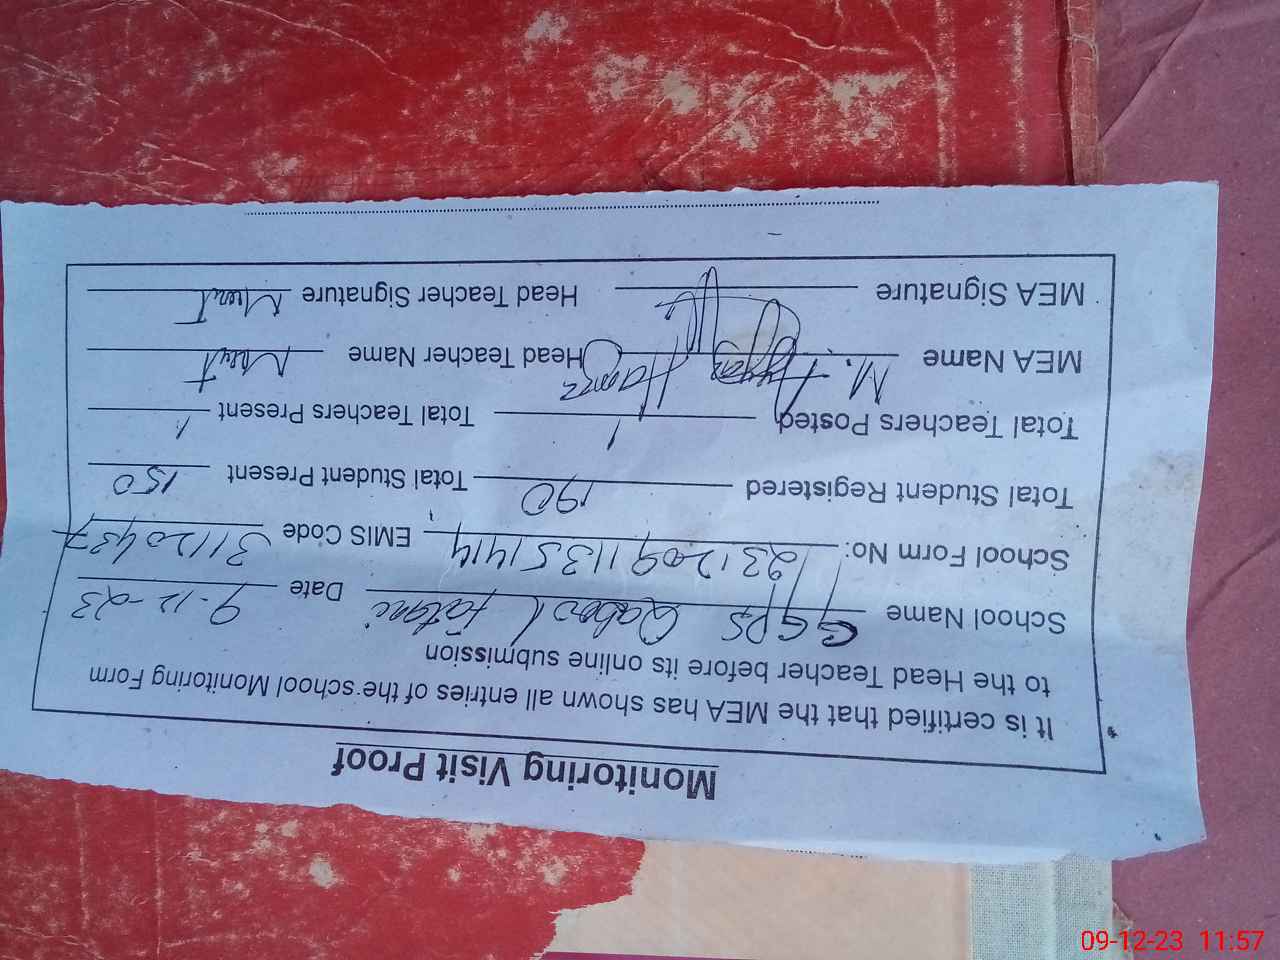 Monitoring Visit Proof
It is certified that the MEA has shown all entries of the school Monitoring Form
to the Head Teacher before its online submission
School Name GGPS Date 9-12-23
School Form No: 23120911351414 EMIS Code 31120437
Total Student Registered 190 Total Student Present 150
Total Teachers Posted 1 Total Teachers Present 1
MEA Name M. Hamza Head Teacher Name
MEA Signature Head Teacher Signature
09-12-23 11:57